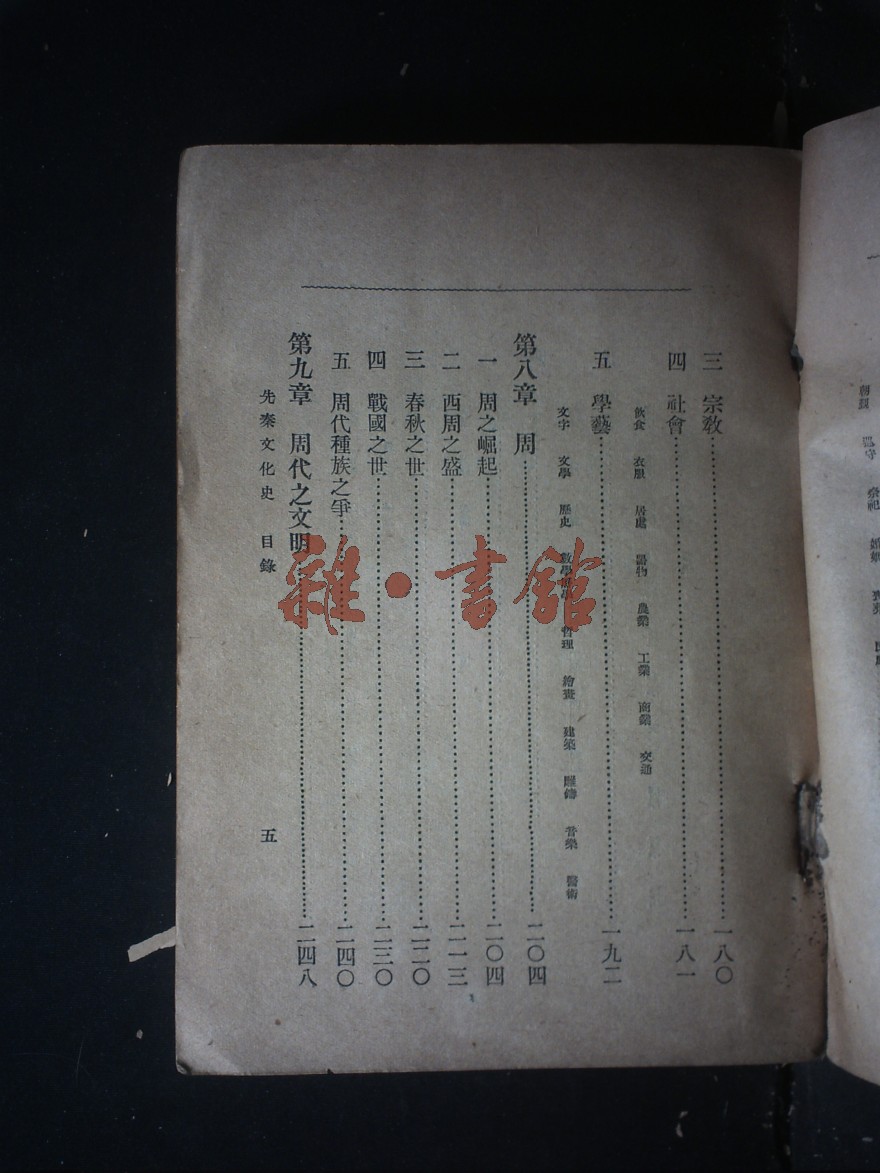 三 宗教……一八〇
四 社會……一八一
飲食 衣服 居處 器物 農業 工業 商業 交通
五 學藝……一九二
文字 文學 歷史 數學 哲理 繪畫 建築 雕鑄 音樂 醫術
第八章 周……二〇四
一 周之崛起……二〇四
二 西周之盛……二一三
三 春秋之世……二二〇
四 戰國之世……二三〇
五 周代種族之爭……二四〇
第九章 周代之文明……二四八
先秦文化史 目錄 五
雜·書館